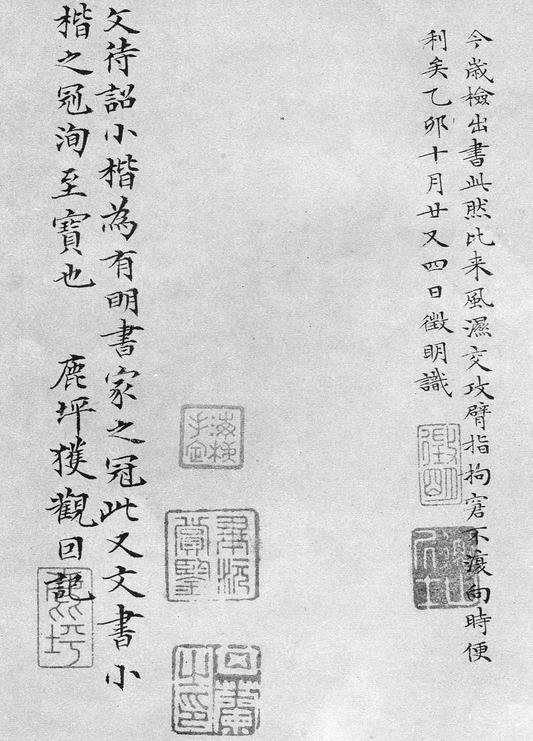 今歳檢出書此然比来風濕交攻臂指拘窘不復向時便
利矣乙卯十月廿又四日徵明識
徵明
文待詔小楷為有明書家之冠此又文書小
楷之冠洵至寶也　鹿坪獲觀因記
鹿坪